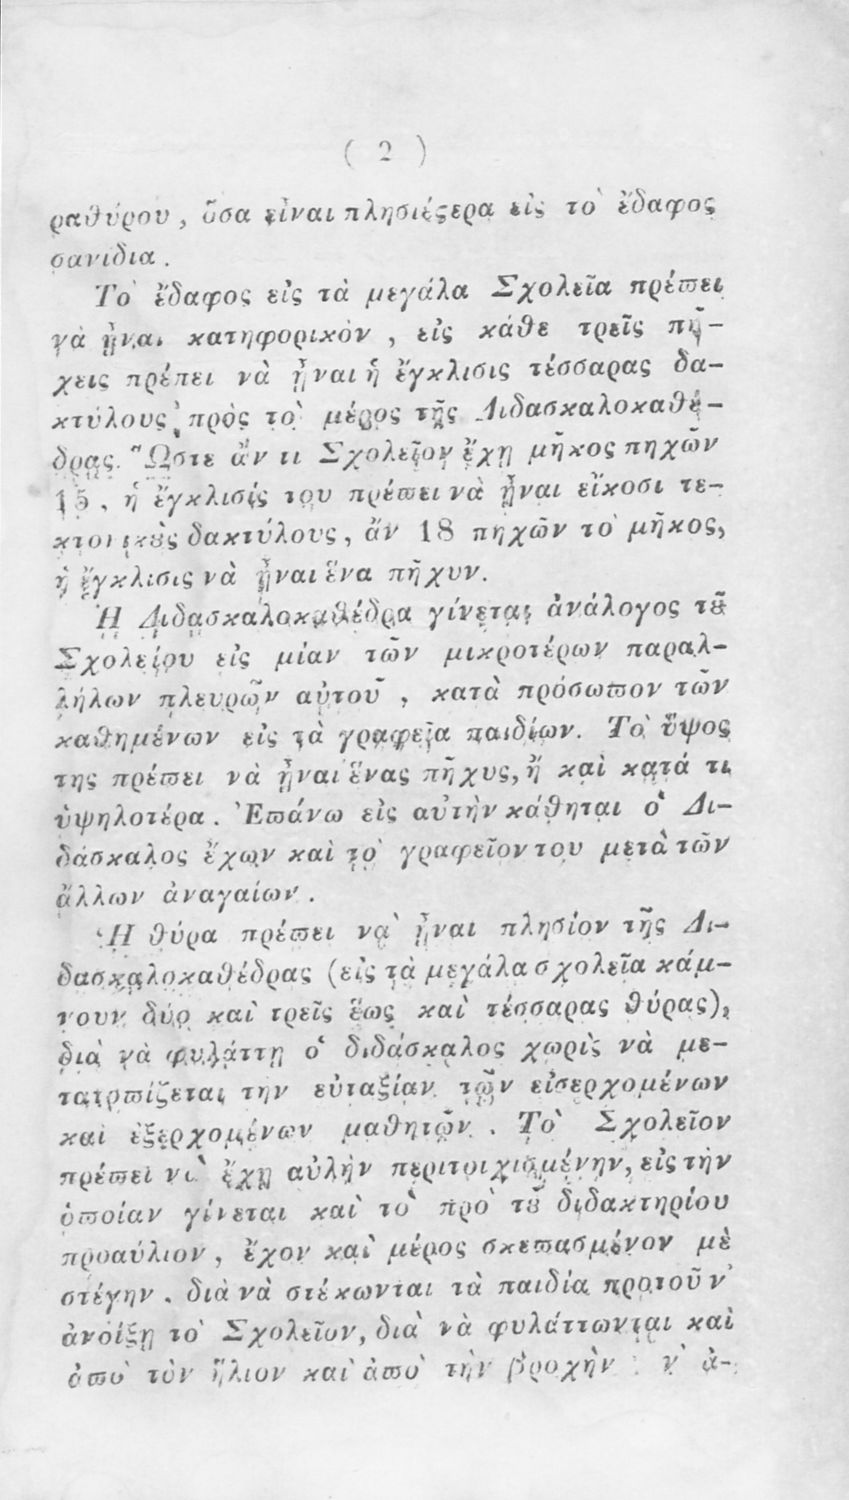 ( 2 )
ραθύρου, ὅσα εἶναι πλησιέςερα εἰς τὸ ἔδαφος
σανίδια.
Τὸ ἔδαφος εἰς τὰ μεγάλα Σχολεῖα πρέϖει
νὰ ᾖναι κατηφορικὸν, εἰς κάθε τρεῖς πή-
χεις πρέπει νὰ ᾖναι ἡ ἔγκλισις τέσσαρας δα-
κτύλους, πρὸς τὸ μέρος τῆς Διδασκαλοκαθέ-
δρας. Ὥστε ἄν τι Σχολεῖον ἔχῃ μῆκος πηχῶν
15, ἡ ἔγκλισίς του πρέϖει νὰ ᾖναι εἴκοσι τε-
κτονικȣ̀ς δακτύλους, ἄν 18 πηχῶν τὸ μῆκος,
ἡ ἔγκλισις νὰ ᾖναι ἕνα πῆχυν.
Ἡ Διδασκαλοκαθέδρα γίνεται ἀνάλογος τȣ͂
Σχολείου εἰς μίαν τῶν μικροτέρων παραλ-
λήλων πλευρῶν αὑτοῦ, κατὰ πρόσωϖον τῶν
καθημένων εἰς τὰ γραφεῖα παιδίων. Τὸ ὕψος
της πρέϖει νὰ ᾖναι ἕνας πῆχυς, ἤ καὶ κατά τι
ὑψηλοτέρα. Ἐϖάνω εἰς αὐτὴν κάθηται ὁ Δι-
δάσκαλος ἔχων καὶ τὸ γραφεῖον του μετὰ τῶν
ἄλλων ἀναγαίων.
Ἡ θύρα πρέϖει νὰ ᾖναι πλησίον τῆς Δι-
δασκαλοκαθέδρας (εἰς τὰ μεγάλα σχολεῖα κάμ-
νουν δύο καὶ τρεῖς ἕως καὶ τέσσαρας θύρας),
διὰ νὰ φυλάττῃ ὁ διδάσκαλος χωρὶς νὰ με-
τατοϖίζεται τὴν εὐταξίαν τῶν εἰσερχομένων
καὶ ἐξερχομένων μαθητῶν. Τὸ Σχολεῖον
πρέϖει νὰ ἔχῃ αὐλὴν περιτοιχισμένην, εἰς τὴν
ὁϖοίαν γίνεται καὶ τὸ πρὸ τȣ͂ διδακτηρίου
προαύλιον, ἔχον καὶ μέρος σκεϖασμένον μὲ
στέγην, διὰ νὰ στέκωνται τὰ παιδία προτοῦ ν'
ἀνοίξῃ τὸ Σχολεῖον, διὰ νὰ φυλάττωνται καὶ
ἀϖὸ τὸν ἥλιον καὶ ἀϖὸ τὴν βροχὴν ν' ἀ-